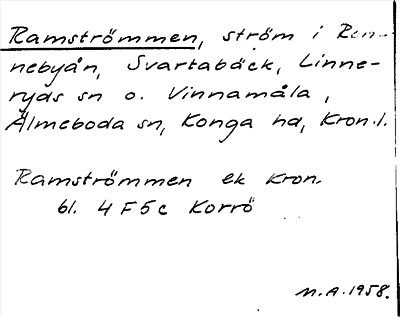 Ramströmmen, ström i Ron-
nebyån, Svartabäck, Linne-
ryds sn o. Vinnamåla,
Älmeboda sn, Konga hd, Kron. l.
Ramströmmen ek Kron.
bl. 4 F 5 c Korrö
M.A. 1958.